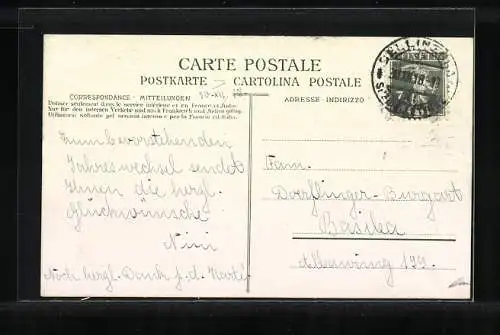 CARTE POSTALE
POSTKARTE CARTOLINA POSTALE
CORRESPONDANCE - MITTEILUNGEN
ADRESSE - INDIRIZZO
Utiliser seulement dans le service intérieur et en France et Italie.
Nur für den internen Verkehr und nach Frankreich und Italien giltig.
Utilizzare soltanto pel servizio interno e per la Francia ed Italia.
Zum bevorstehenden
Jahreswechsel sendet
Ihnen die herzl.
Glückwünsche
Nini
Noch herzl. Dank f. d. Karte!
Fam.
Dorflinger-Burgart
Basilea
199.